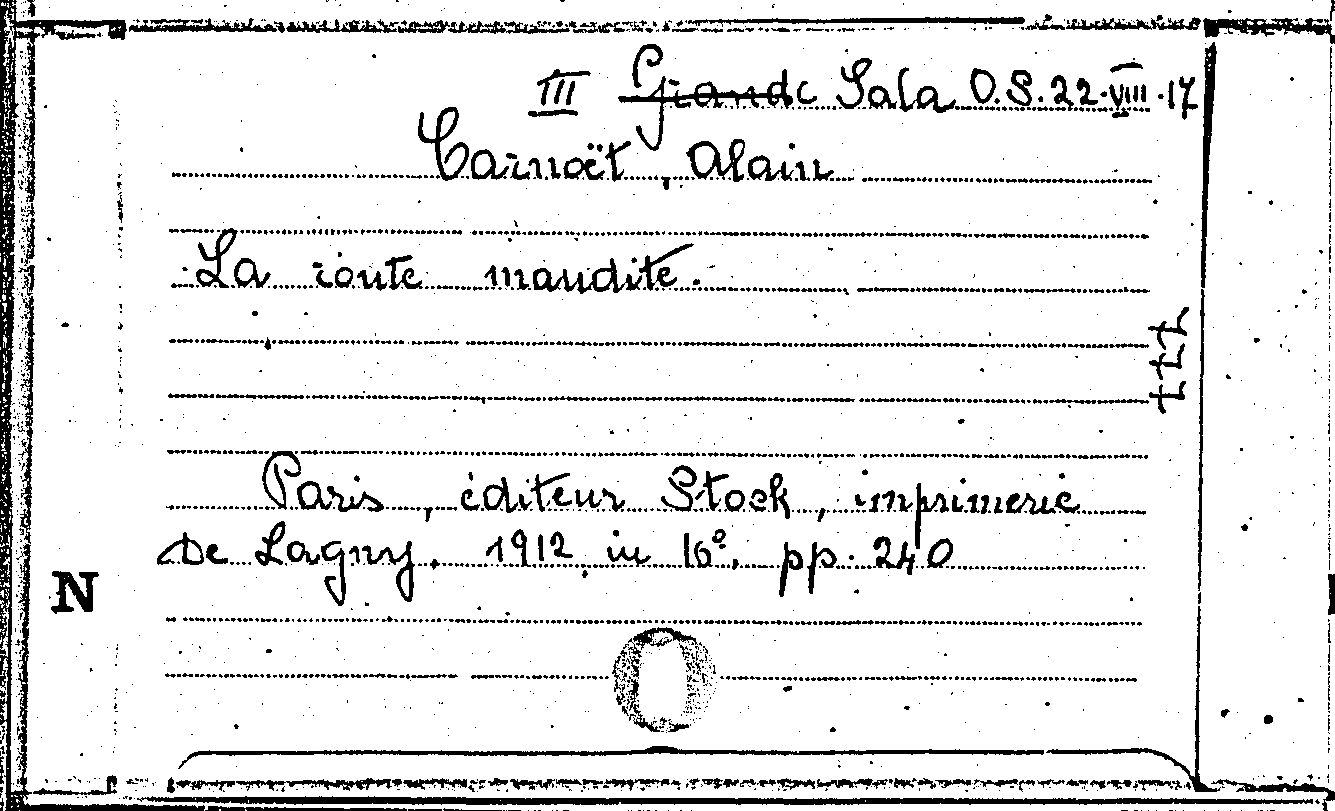 III Grande Sala O.S.22.VIII.17
Carnoët, Alain
La route maudite.
777
Paris, éditeur Stock, imprimerie
De Lagny. 1912, in 16º. pp. 240
N